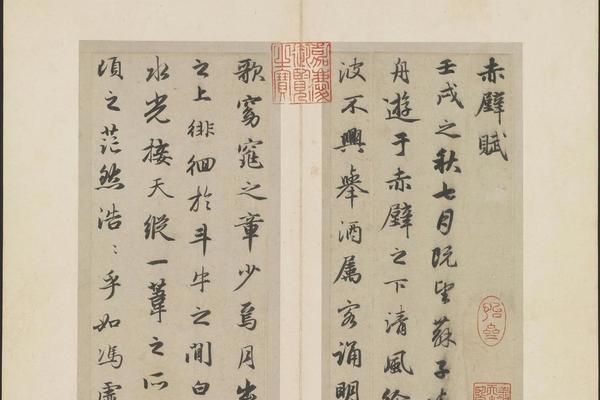 赤壁賦
壬戌之秋七月既望蘇子
舟遊于赤壁之下清風徐
波不興舉酒属客誦明
歌窈窕之章少焉月出
之上徘徊於斗牛之間白
水光接天縱一葦之所
頃之茫然浩〻乎如馮虛
嘉慶御覽之寶